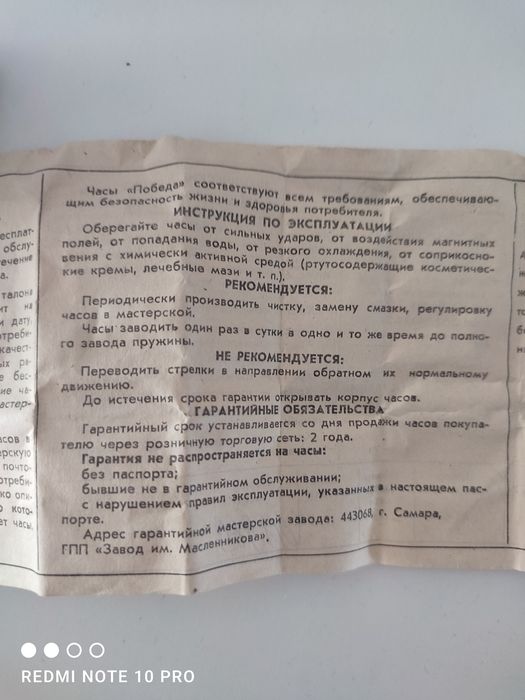 Часы «Победа» соответствуют всем требованиям, обеспечиваю-
щим безопасность жизни и здоровья потребителя.
ИНСТРУКЦИЯ ПО ЭКСПЛУАТАЦИИ
Оберегайте часы от сильных ударов, от воздействия магнитных
полей, от попадания воды, от резкого охлаждения, от соприкосно-
вения с химически активной средой (ртутосодержащие косметичес-
кие кремы, лечебные мази и т. п.),
РЕКОМЕНДУЕТСЯ:
Периодически производить чистку, замену смазки, регулировку
часов в мастерской.
Часы заводить один раз в сутки в одно и то же время до полно-
го завода пружины.
НЕ РЕКОМЕНДУЕТСЯ:
Переводить стрелки в направлении обратном их нормальному
движению.
До истечения срока гарантии открывать корпус часов.
ГАРАНТИЙНЫЕ ОБЯЗАТЕЛЬСТВА
Гарантийный срок устанавливается со дня продажи часов покупа-
телю через розничную торговую сеть: 2 года.
Гарантия не распространяется на часы:
без паспорта;
бывшие не в гарантийном обслуживании;
с нарушением правил эксплуатации, указанных в настоящем пас-
порте.
Адрес гарантийной мастерской завода: 443068, г. Самара,
ГПП «Завод им. Масленникова».
REDMI NOTE 10 PRO